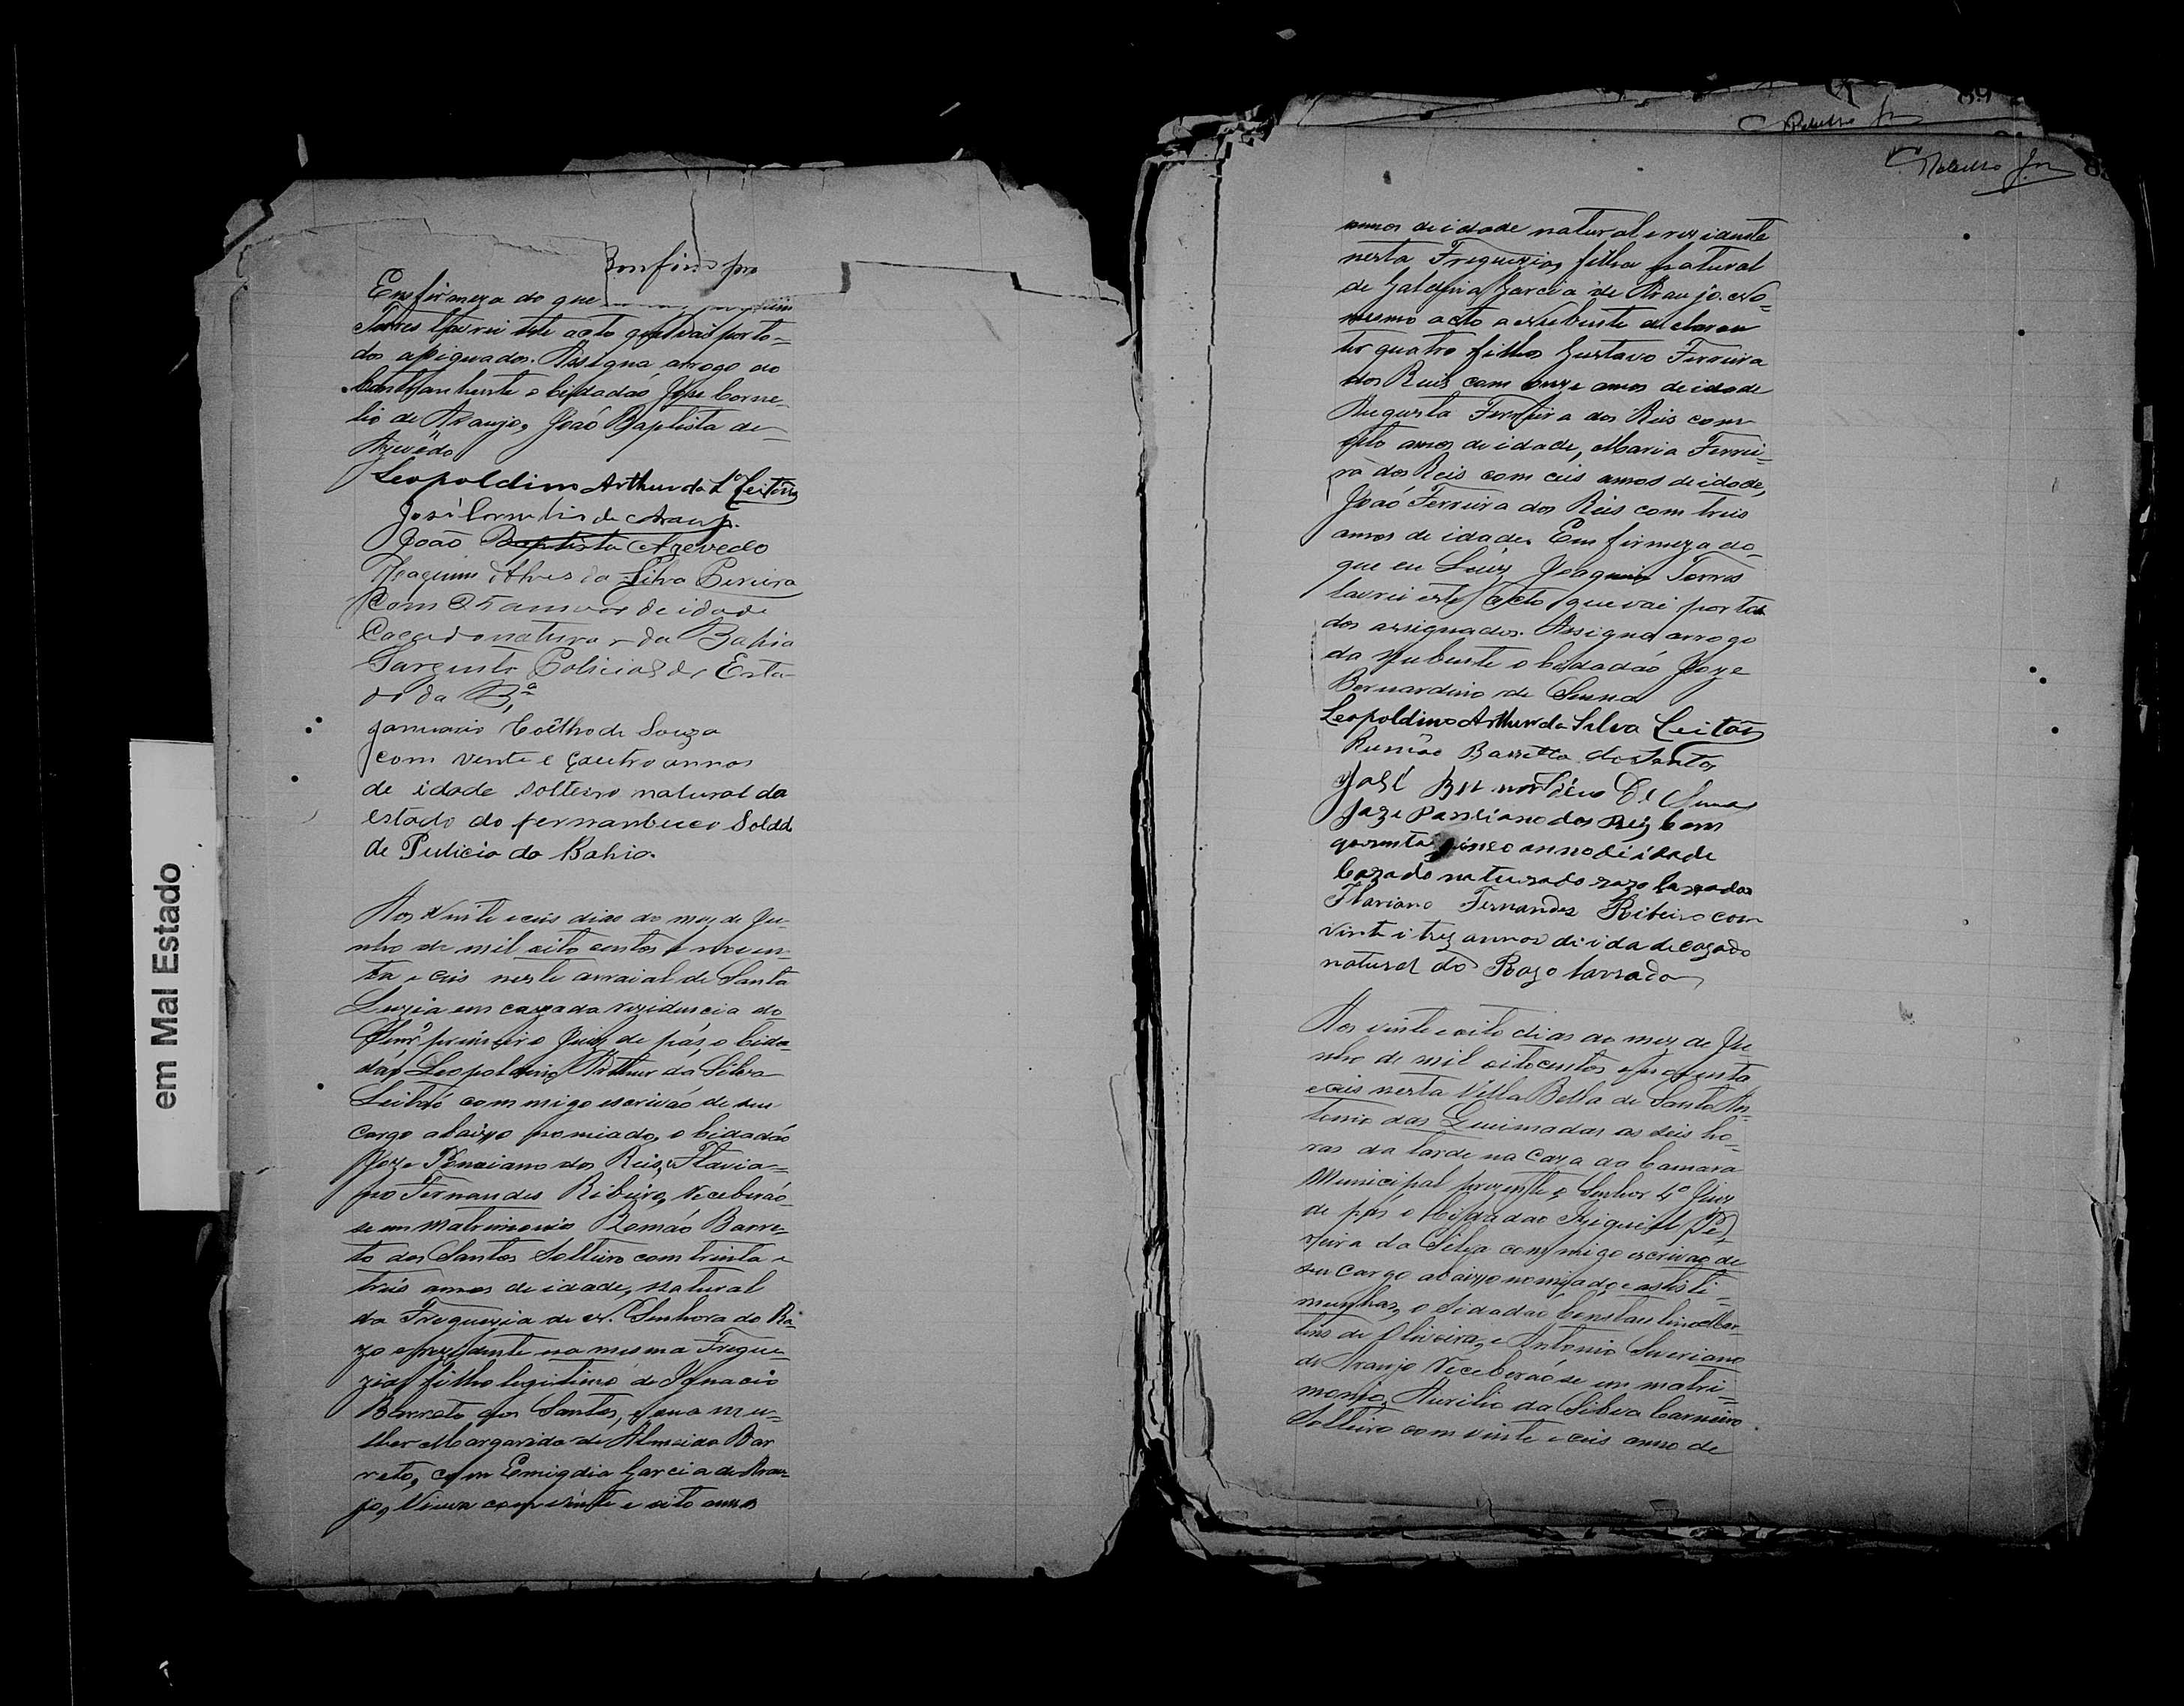 em Mal Estado
Bonfim pro
Em firmeza do que
Torres lavrei este acto que vai por to-
dos assignados. Assigna arrogo do
Contrahente o Cidadaó Joze Corne-
lio de Araujo, Joaó Baptista de
Azevêdo
Leopoldino Arthur da Sª Leitão
José Cornelio de Araujo.
João Baptista Azevedo
Joaquim Alves da Silva Pereira
Com 25 annos de idade
Cazado natural da Bahia
Sargento Policial do Esta-
do da Bª
Januario Coêlho de Souza
com vente e quatro annos
de idade solteiro natural do
estado do fernambuco Soldd
de Pulicia da Bahia.
Aos Vinte e ceis dias do mez de Ju-
nho de mil oito centos e noven-
ta e ceis neste arraial de Santa
Luzia em caza da rezidencia do
Senr. primeiro Juiz de pás, o Cida-
dáo Leopoldino Arthur da Silva
Leitaó commigo escrivaó de seu
cargo abaixo nomiado, o Cidadaó
Joze Ponciano dos Reis, e Flavia-
no Fernandes Ribeiro, Receberaó-
se em Matrimonio Romaó Barre-
to dos Santos Solteiro com trinta e
treis annos de idade, Natural
da Freguezia de N. Senhora do Ra-
zo e rezidente na mesma Fregue-
zia, filho legitimo de Ignacio
Barreto dos Santos, e sua mu-
lher Margarida de Almeida Bar
reto, com Emigdia Garcia de Arau-
jo, Viuva com vinte e oito annos
Rabello Jr.
89
Rabello Jr.
annos de idade natural e rezidente
nesta Freguezia, filha natural
de Garcia de Araujo. No
mesmo acto a Nubente declarou
ter quatro filhos Gustavo Ferreira
dos Reis com onze annos de idade
Augusta Ferreira dos Reis com
oito annos de idade, Maria Ferrei-
ra dos Reis com ceis annos de idade,
Joaó Ferreira dos Reis com treis
annos de idade. Em firmeza do
que eu Luiz Joaquim Torres
lavrei este acto que vai por to
dos assignados. Assigna arrogo
da Nubente o Cidadaó Joze
Bernardino de Senna
Leopoldino Arthur da Silva Leitão
Rumão Barretto dos Santos
José Bernardino De Senna
Joze Ponciano dos Reiz Com
qarenta sinco anno di idade
Cazado naturado razo lavrador
Flaviano Fernandes Ribeiro com
vinte i trez annos di idade cazado
naturel do Razo lavrador
Aos vinte e oito dias do mez de Ju-
nho de mil oitocentos e noventa
e ceis nesta Villa Bella de Santo An-
tonio das Queimadas as seis ho-
ras da tarde na Caza da Camara
Municipal prezente o Senhor 4º Juiz
de pás o Cidadaó Pe-
reira da Silva commigo escrivaó de
seu Cargo abaixo nomiado e as tiste-
munhas, o Cidadaó Constantino Mar-
tins de Oliveira, e Antonio Sueriano
de Araujo Receberaó se em matri-
monio, Aurilio da Silva Carneiro
Solteiro com vinte e ceis anno de